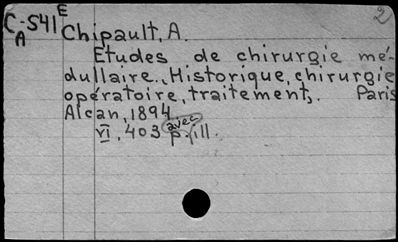 2
C-541E
A
Chipault, A.
Etudes de chirurgie mé-
dullaire., Historique, chirurgie
opératoire, traitement, . Paris
Alcan, 1894
VI, 403 p. avec ill.